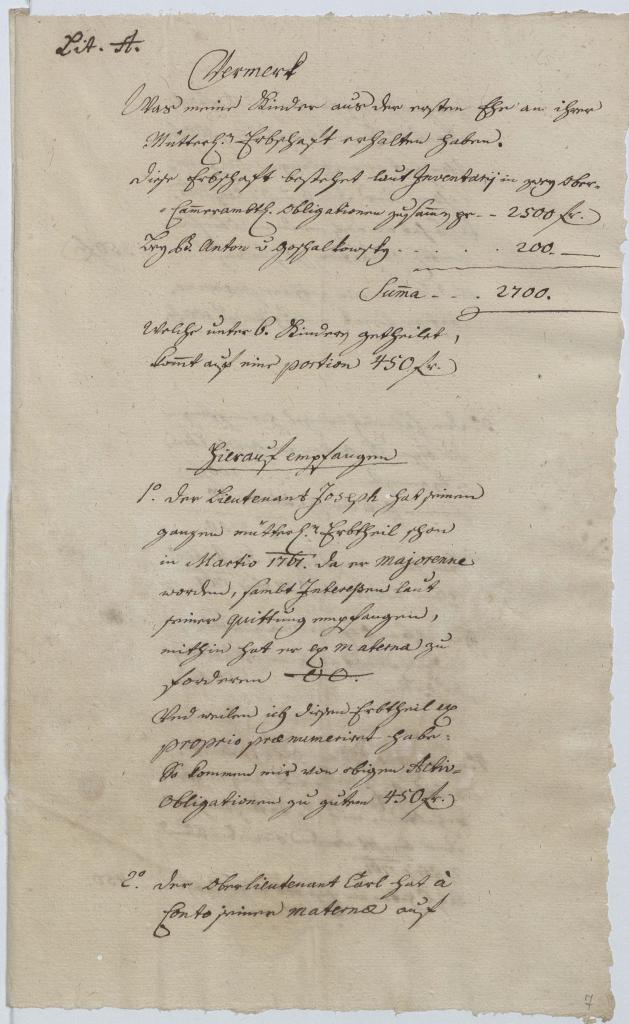 Lit. A.
Vermerk
Was meine Kinder aus der ersten Ehe an ihrer
Mütterl.n Erbschaft erhalten haben.
diese Erbschaft bestehet laut Inventarij in zwey Ober-
Cammerambth. Obligationen zusammen pr. - 2500 fr.
bey Anton v Goschalkowsky . . . . . 200.
Summa - - . 2700.
Welche unter 6. Kindern getheilet,
kommt auf eine portion 450 fr.
Hierauf empfangen
1o. der Lieutenant Joseph hat seinen
ganzen mütterl.n Erbtheil schon
in Martio 1761. da er majorenne
worden, sambt Interessen laut
seiner quittung empfangen,
mithin hat er ex materna zu
forderen
Und weilen ich diesen Erbtheil ex
proprio praenumeriret habe:
So kommen mir von obigen Activ-
Obligationen zu gutem 450 fr.
2o. der Oberlieutenant Carl hat à
Conto seiner maternae auf
7